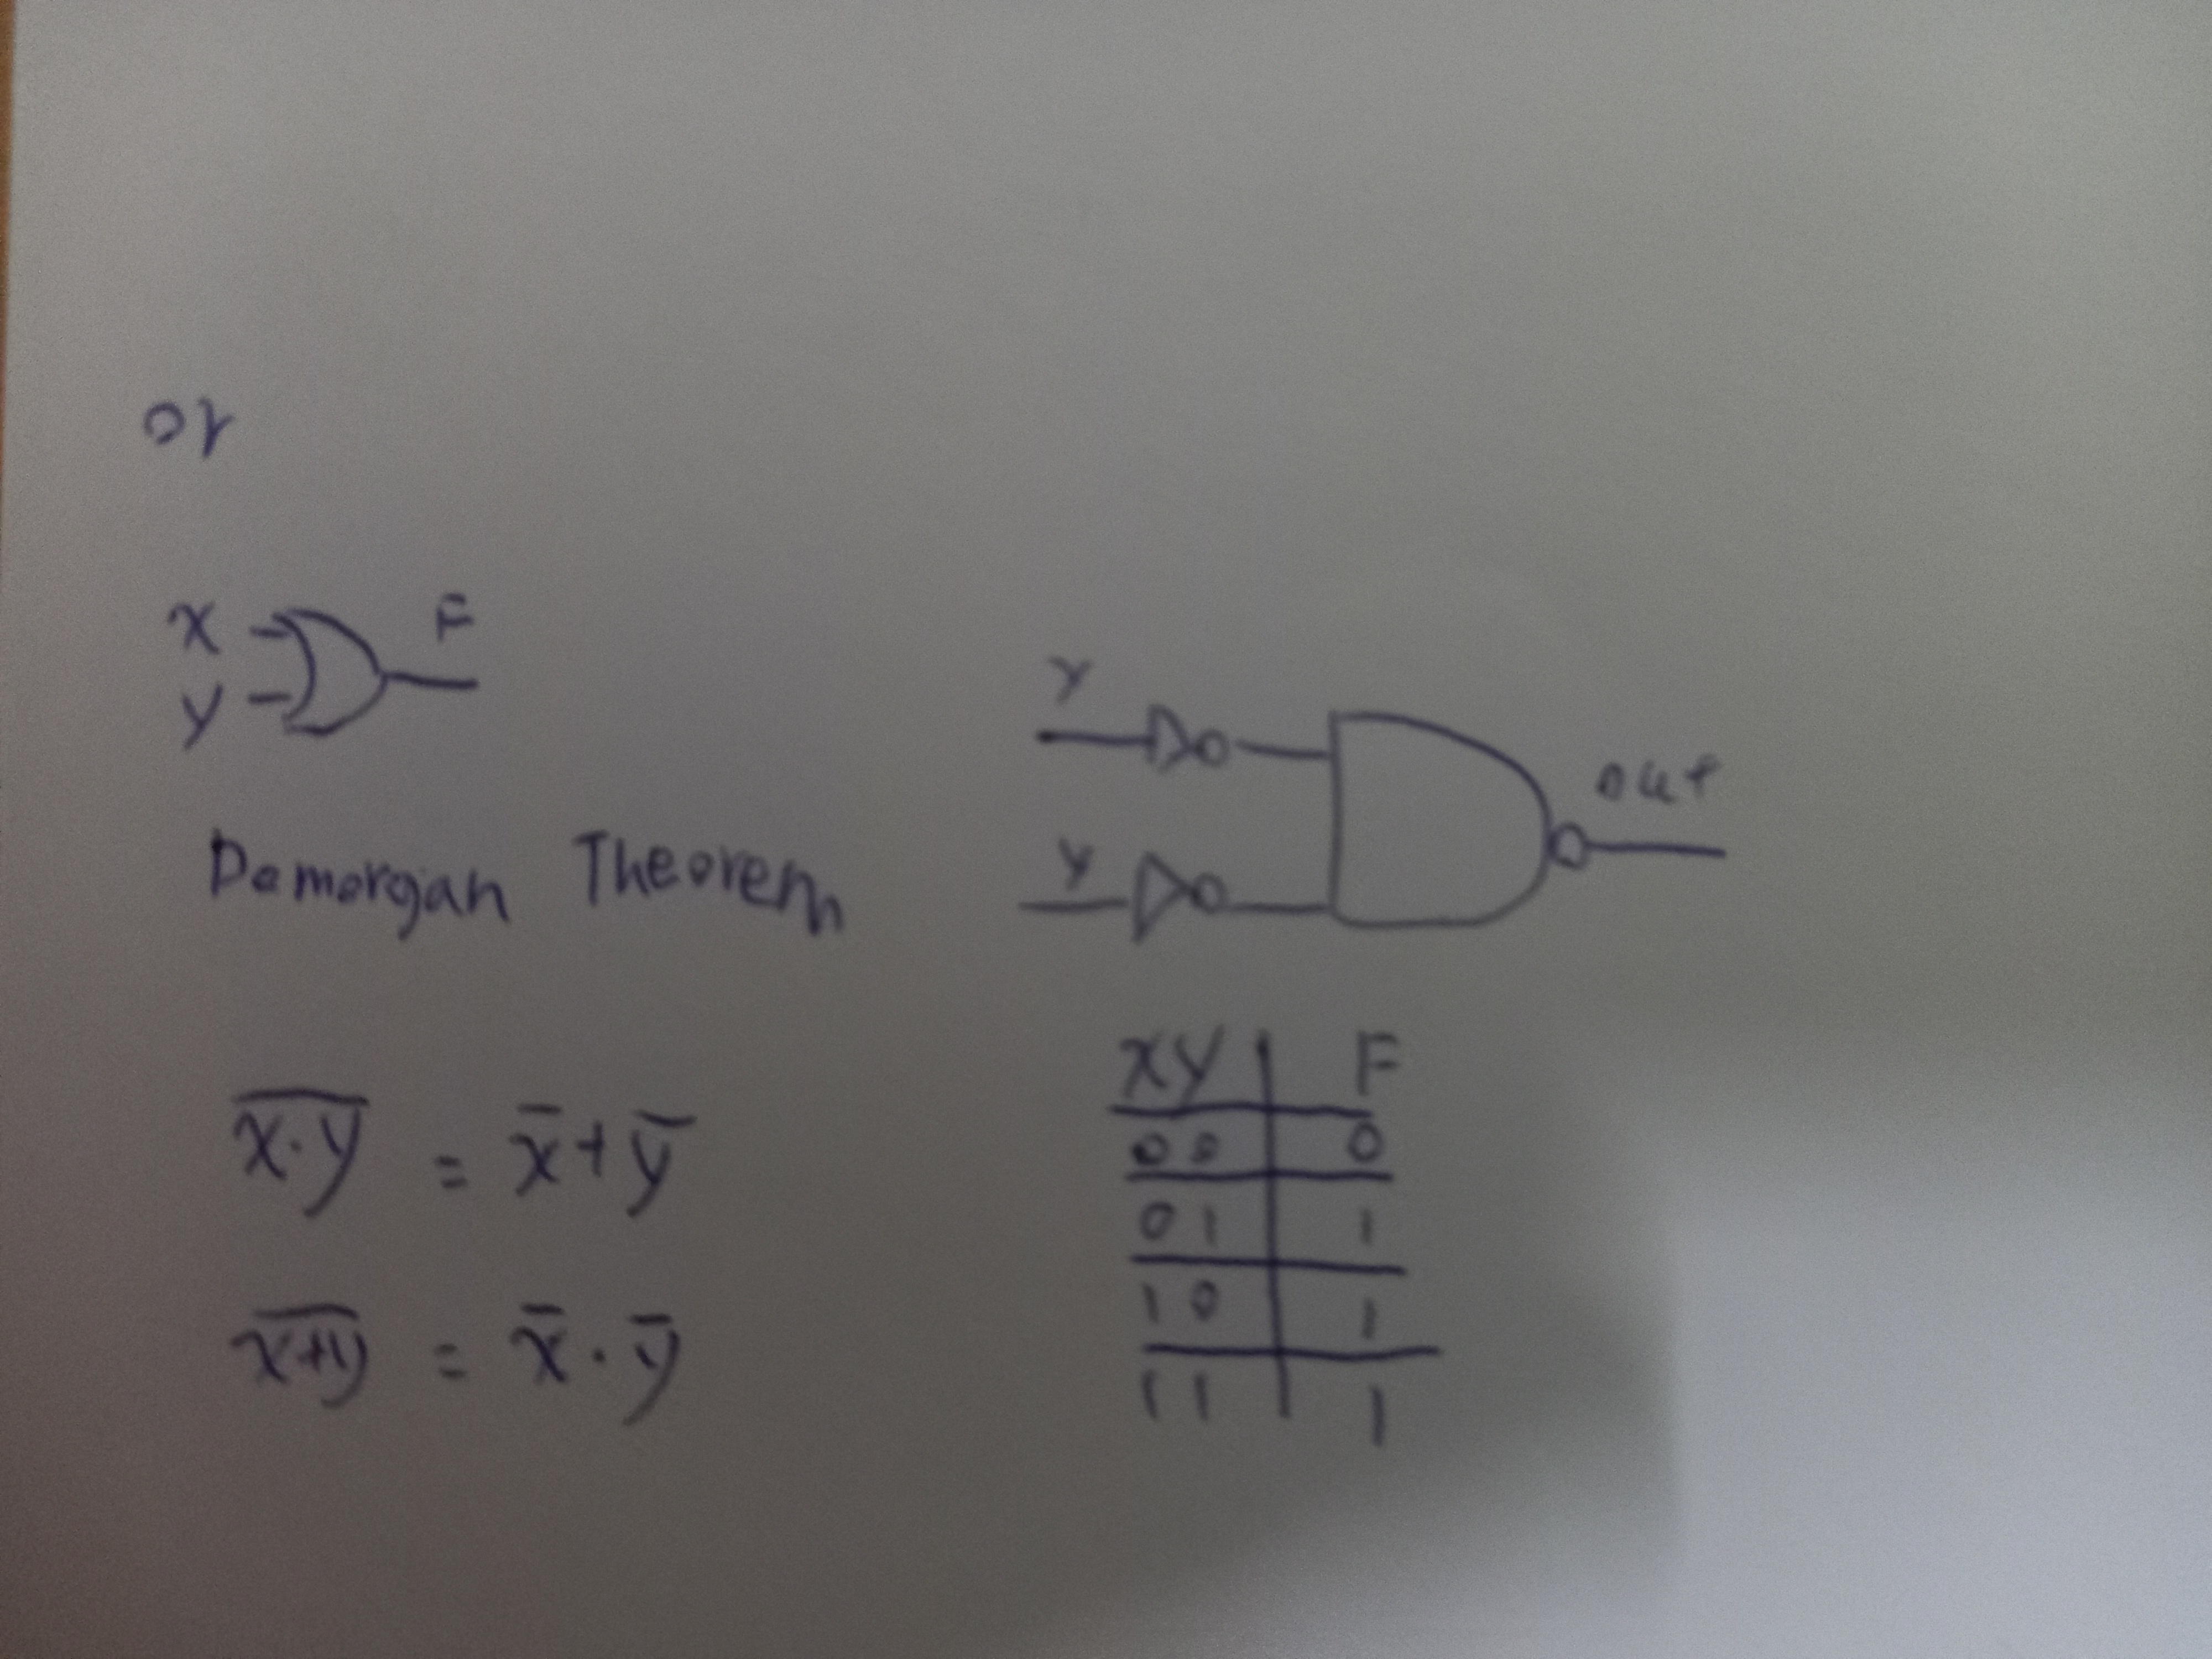 or
x
y
F
Demorgan Theorem
\overline{x·y} = x̄+ȳ
\overline{x+y} = x̄·ȳ
Y
y
out
xy F
00 0
01 1
10 1
11 1